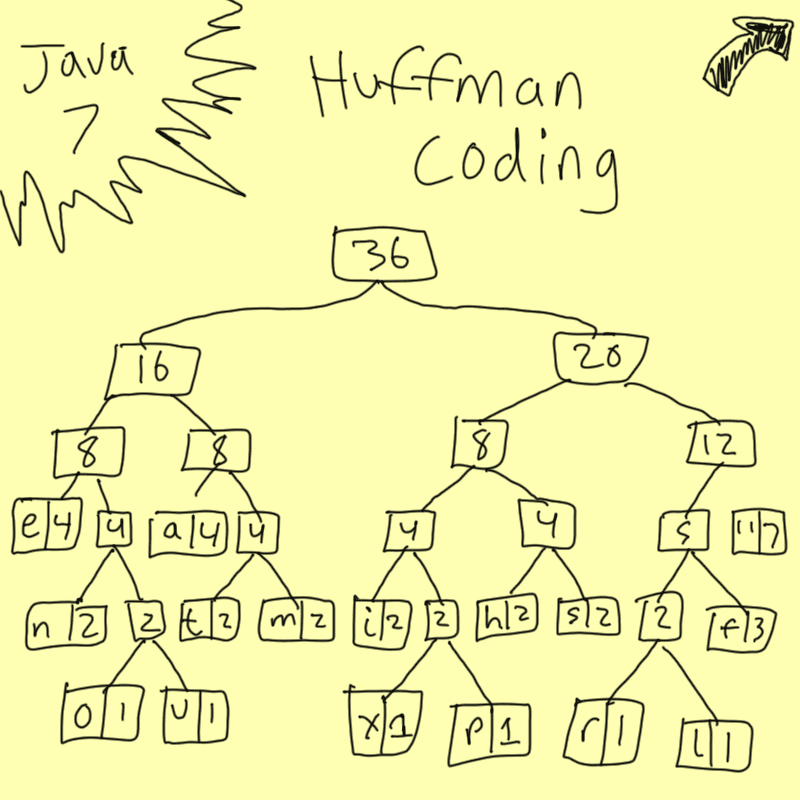 Java
7
Huffman
Coding
36
16
20
8
8
8
12
e 4
4
a 4
4
4
4
5
" 7
n 2
2
t 2
m 2
i 2
2
h 2
s 2
2
f 3
o 1
u 1
x 1
p 1
r 1
l 1